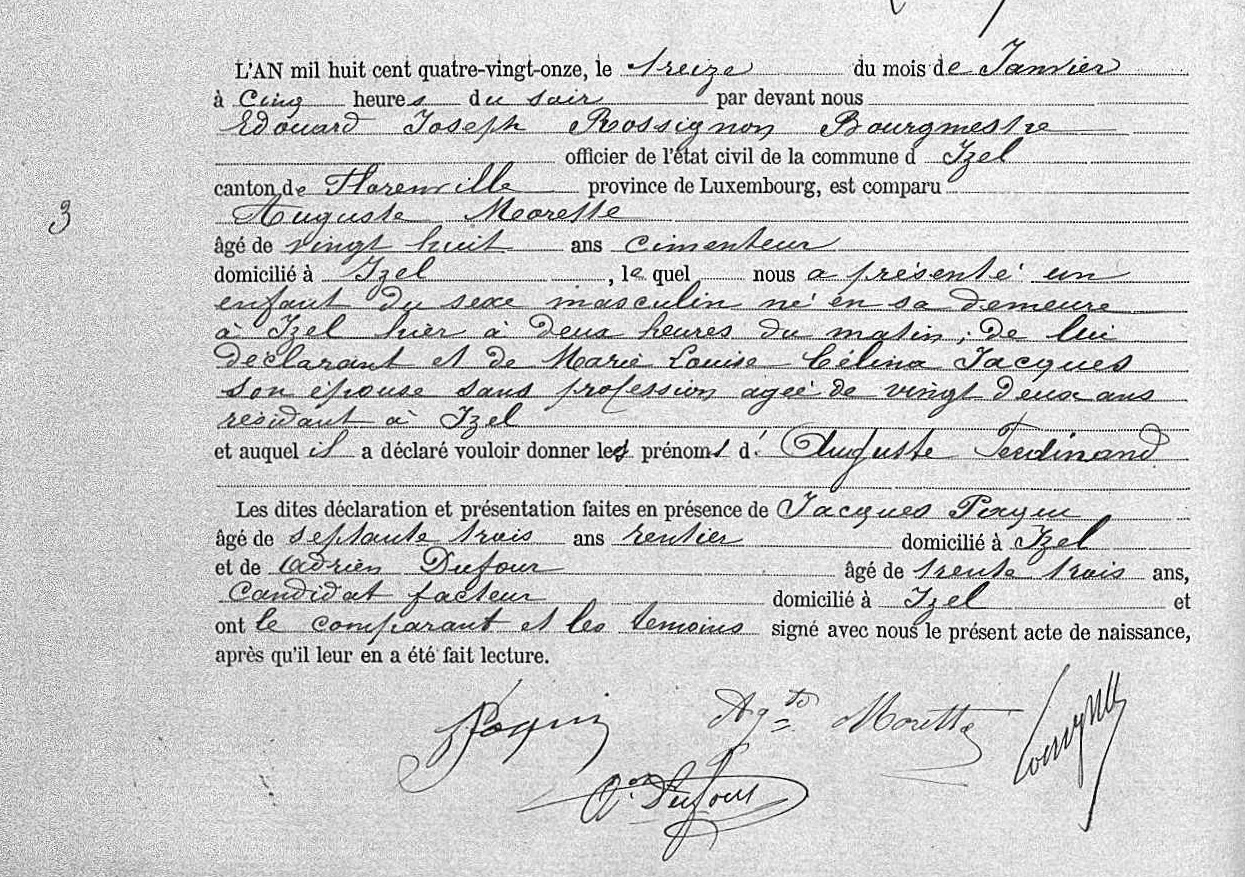 L'AN mil huit cent quatre-vingt-onze, le treize du mois de Janvier
à Cinq heures du soir par devant nous
Edouard Joseph Rossignon Bourgmestre
officier de l'état civil de la commune d Izel
canton de Florenville province de Luxembourg, est comparu
Auguste Morette
3
âgé de vingt huit ans cimenteur
domicilié à Izel, le quel nous a présenté un
enfant du sexe masculin né en sa demeure
à Izel hier à deux heures du matin, de lui
déclarant et de Marie Louise Célina Jacques
son épouse sans profession agée de vingt deux ans
résidant à Izel
et auquel il a déclaré vouloir donner les prénoms d' Auguste Ferdinand
Les dites déclaration et présentation faites en présence de Jacques
âgé de septante trois ans rentier domicilié à Izel
et de Adrien Dufour âgé de trente trois ans,
Candidat facteur domicilié à Izel et
ont le comparant et les temoins signé avec nous le présent acte de naissance,
après qu'il leur en a été fait lecture.
Agte Morette
Dufour